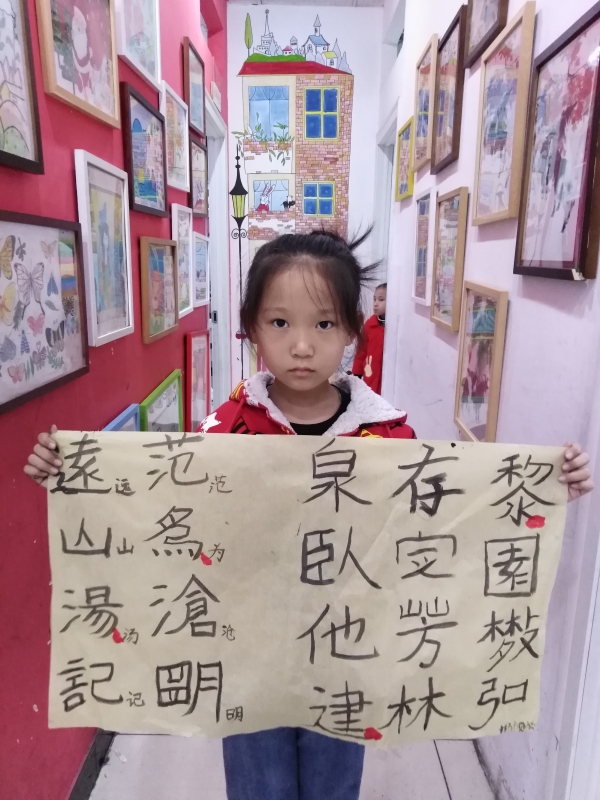 黎園弘
存㝎芳林
泉臥他建
范范為为滄沧朙明
遠远山山湯汤記记